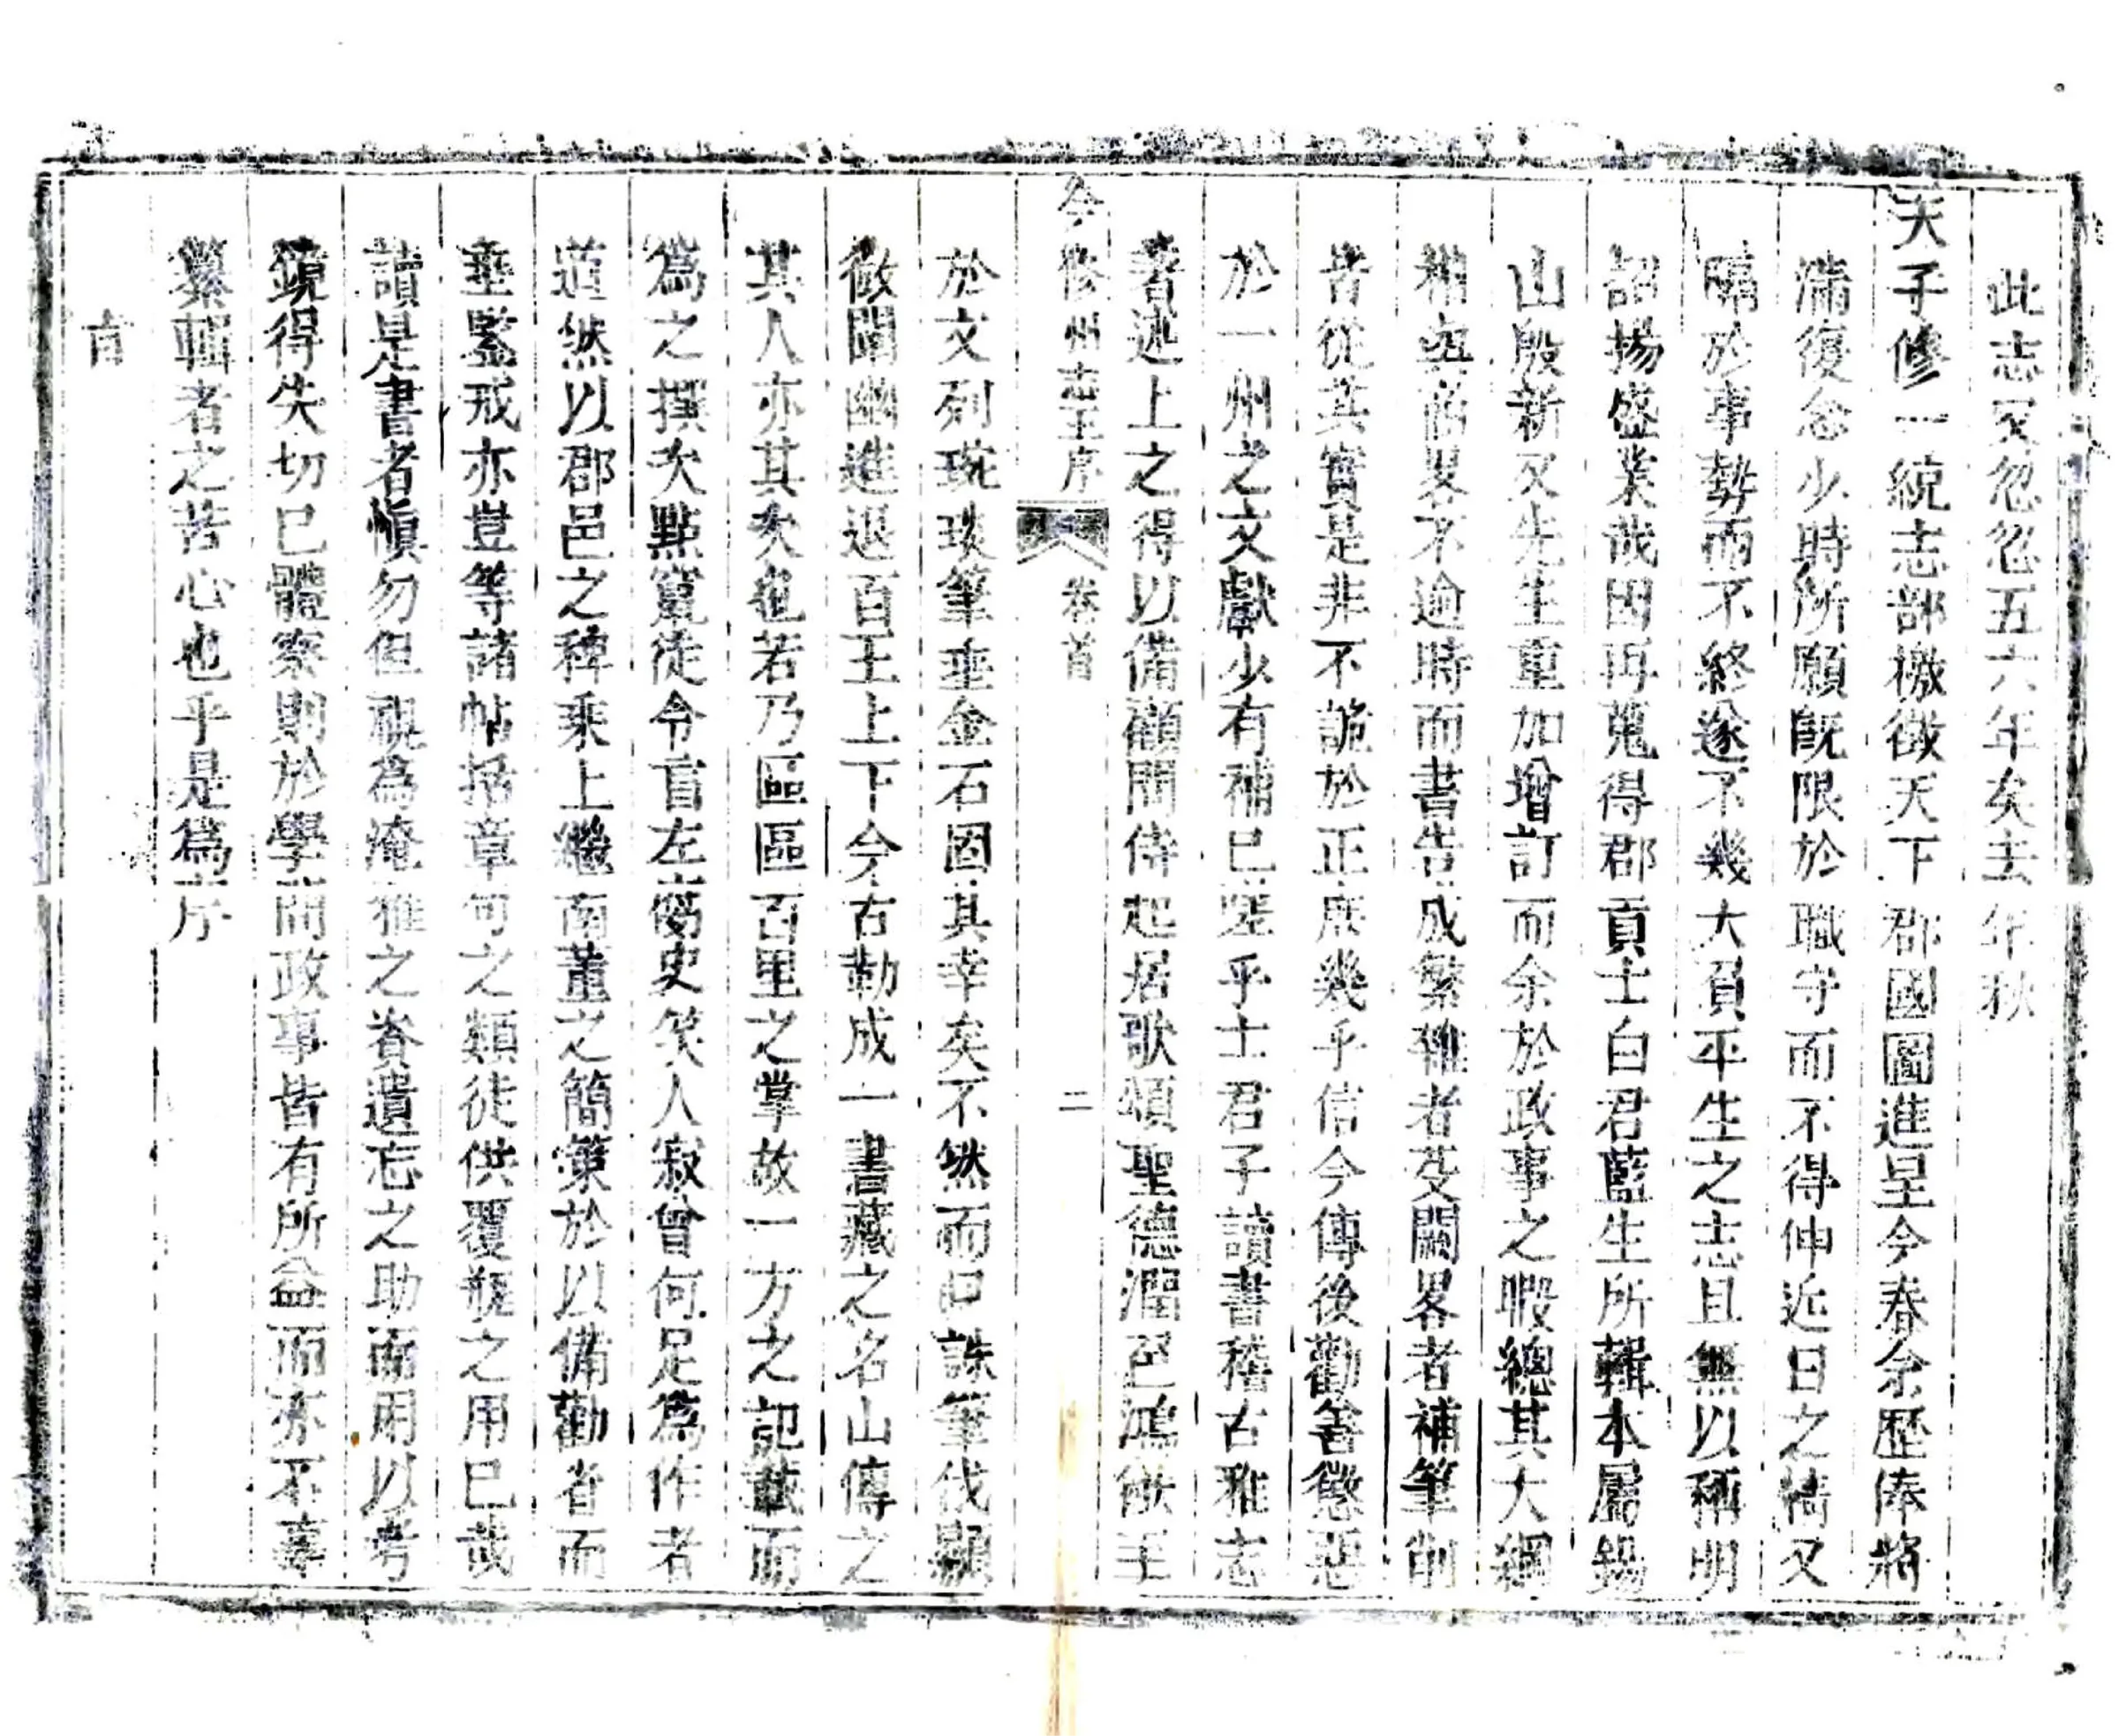 此志又忽忽五六年矣去年秋
天子修一統志部檄徵天下郡國圖進呈今春余歷俸將
滿復念少時所願旣限於職守而不得伸近日之情又
隔於事勢而不終遂不幾大負平生之志且無以稱明
詔揚盛業哉因再蒐得郡貢士白君藍生所輯本屬錫
山殷新又先生重加增訂而余於政事之暇總其大綱
補其前畧不逾時而書告成繁雜者芟闕畧者補筆削
皆從其實是非不詭於正庶幾乎信今傳後勸善懲惡
於一州之文獻少有補已嗟乎士君子讀書稽古雅志
著述上之得以備顧問侍起居歌頌聖德潤色鴻猷至
今修州志王序 卷首 二
於文列琬琰筆垂金石固其幸矣不然而口誅筆伐顯
微闡幽進退百王上下今古勒成一書藏之名山傳之
其人亦其次也若乃區區百里之掌故一方之記載而
爲之撰次點竄徒令盲左腐史笑人寂曾何足爲作者
道然以郡邑之稗乘上繼南董之簡策於以備勸省而
垂鑒戒亦豈等諸帖括章句之類徒供覆瓿之用已哉
讀是書者愼勿但視爲淹雅之資遺忘之助而用以考
鏡得失切已體察則於學問政事皆有所益而亦不辜
纂輯者之苦心也乎是爲序